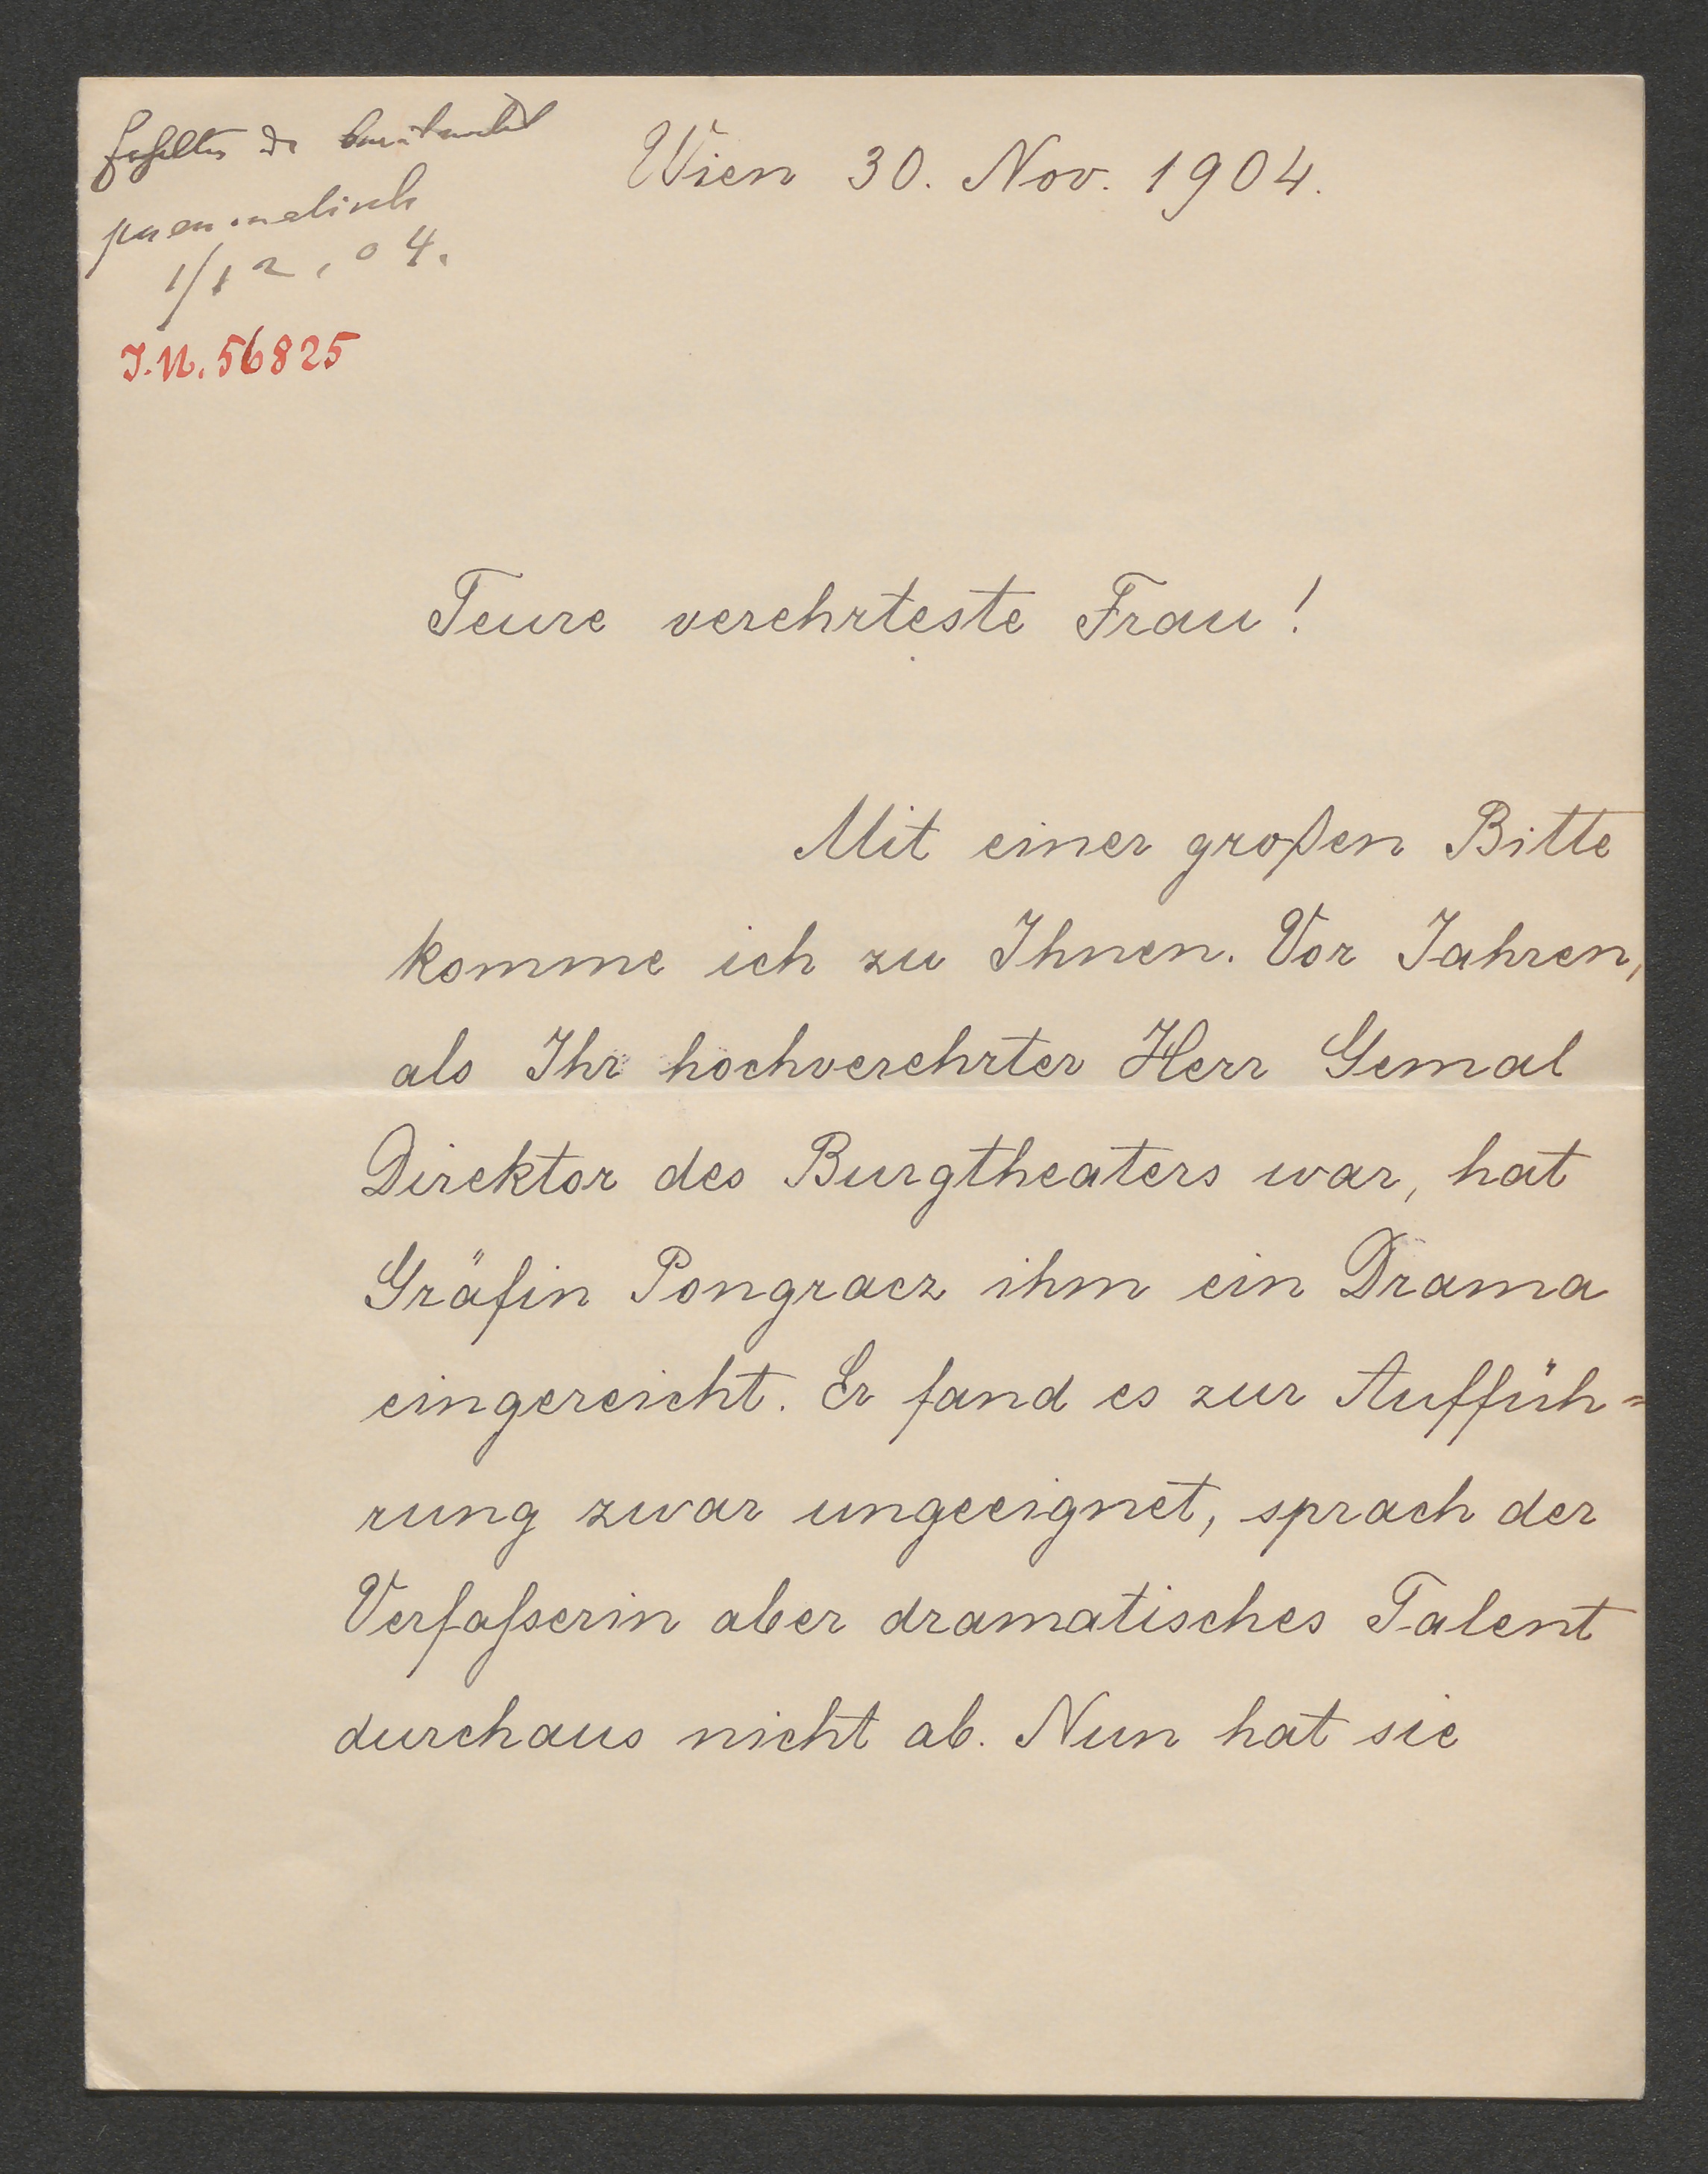 Wien 30. Nov. 1904.
pneumatisch
1/12, 04.
J.N. 56825
Teure verehrteste Frau!
Mit einer großen Bitte
komme ich zu Ihnen. Vor Jahren,
als Ihr hochverehrter Herr Gemal
Direktor des Burgtheaters war, hat
Gräfin Pongracz ihm ein Drama
eingereicht. Er fand es zur Auffüh=
rung zwar ungeeignet, sprach der
Verfaſserin aber dramatisches Talent
durchaus nicht ab. Nun hat sie